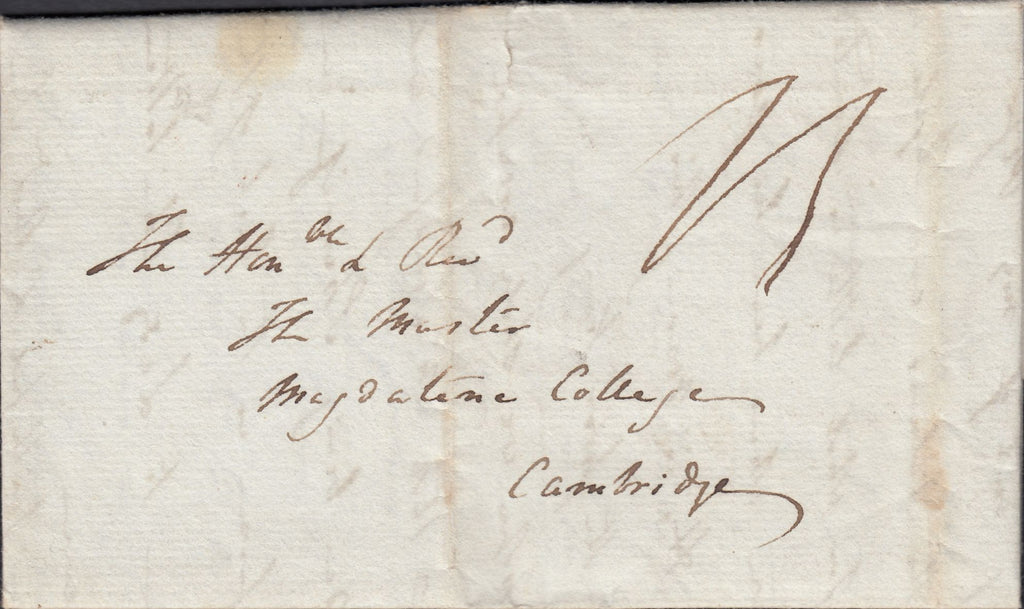 The Honble & Revd
The Master
Magdalene College
Cambridge